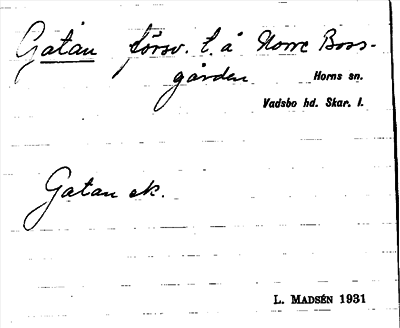 Gatan försv. t. å Norre Boss-
gården
Horns sn.
Vadsbo hd. Skar. l.
Gatan ek.
L. MADSÉN 1931